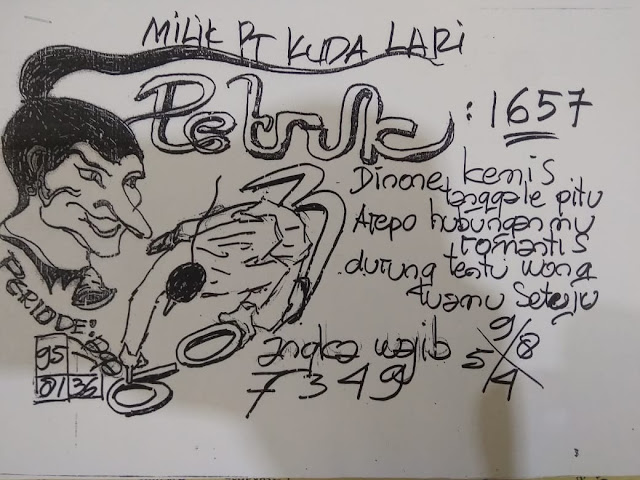 MILIK PT KUDA LARI
Petruk : 1657
Dinone kemis
tanggale pitu
Arepo hubungan mu
romantis
durung tentu wong
tuamu setuju
PERIODE:
95
81 36
angka wajib
7349
9
5 8
4